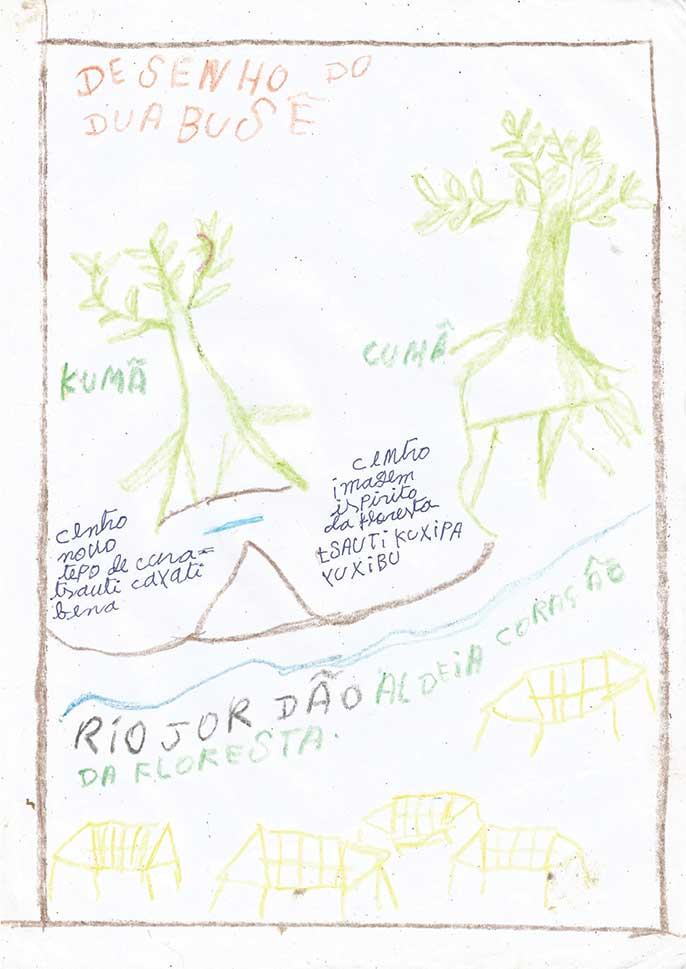 DESENHO DO
DUA BUSÊ
KUMÃ
CUMÃ
centro
novo
tepo de cura=
tsauti caxati
bena
centro
imagem
ispirito
da floresta
tSAUTi KUXiPA
YUXiBU
RiO JORDÃO ALDEiA CORAÇÃO
DA FLORESTA.